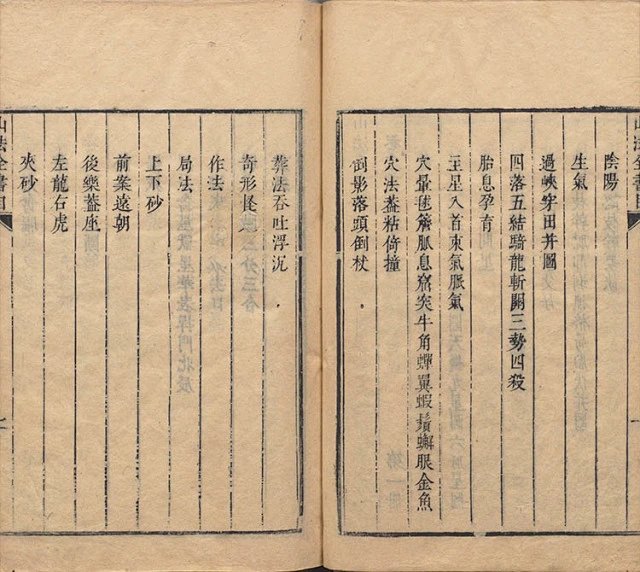 陰陽
生氣
過峽穿田并圖
四落五結騎龍斬關三勢四殺
胎息孕育
主星入首束氣脈氣
穴暈毬簷脈息窟突牛角蟬翼蝦鬚蠏眼金魚
穴法葢粘倚撞
倒影落頭倒杖
葬法吞吐浮沉
奇形怪穴
作法
局法
上下砂
前案遠朝
後樂葢座
左龍右虎
夾砂
山法全書目